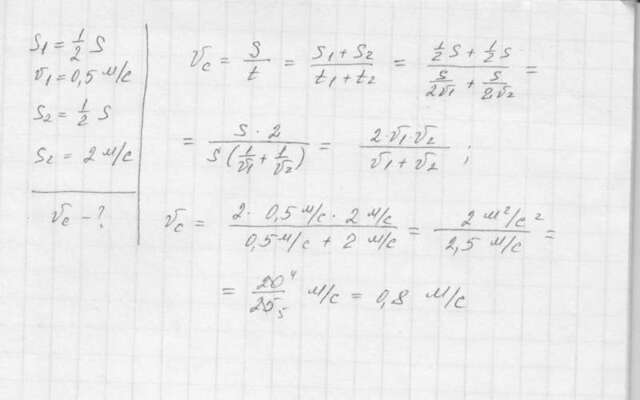 S₁ = 1/2 S
v₁ = 0,5 м/с
S₂ = 1/2 S
S₂ = 2 м/с
v_c - ?
v_c = S/t = (S₁ + S₂)/(t₁ + t₂) = (1/2 S + 1/2 S)/(S/(2v₁) + S/(2v₂)) =
= (S · 2)/(S (1/v₁ + 1/v₂)) = (2 · v₁ · v₂)/(v₁ + v₂) ;
v_c = (2 · 0,5 м/с · 2 м/с)/(0,5 м/с + 2 м/с) = (2 м²/с²)/(2,5 м/с) =
= 20⁴/25₅ м/с = 0,8 м/с